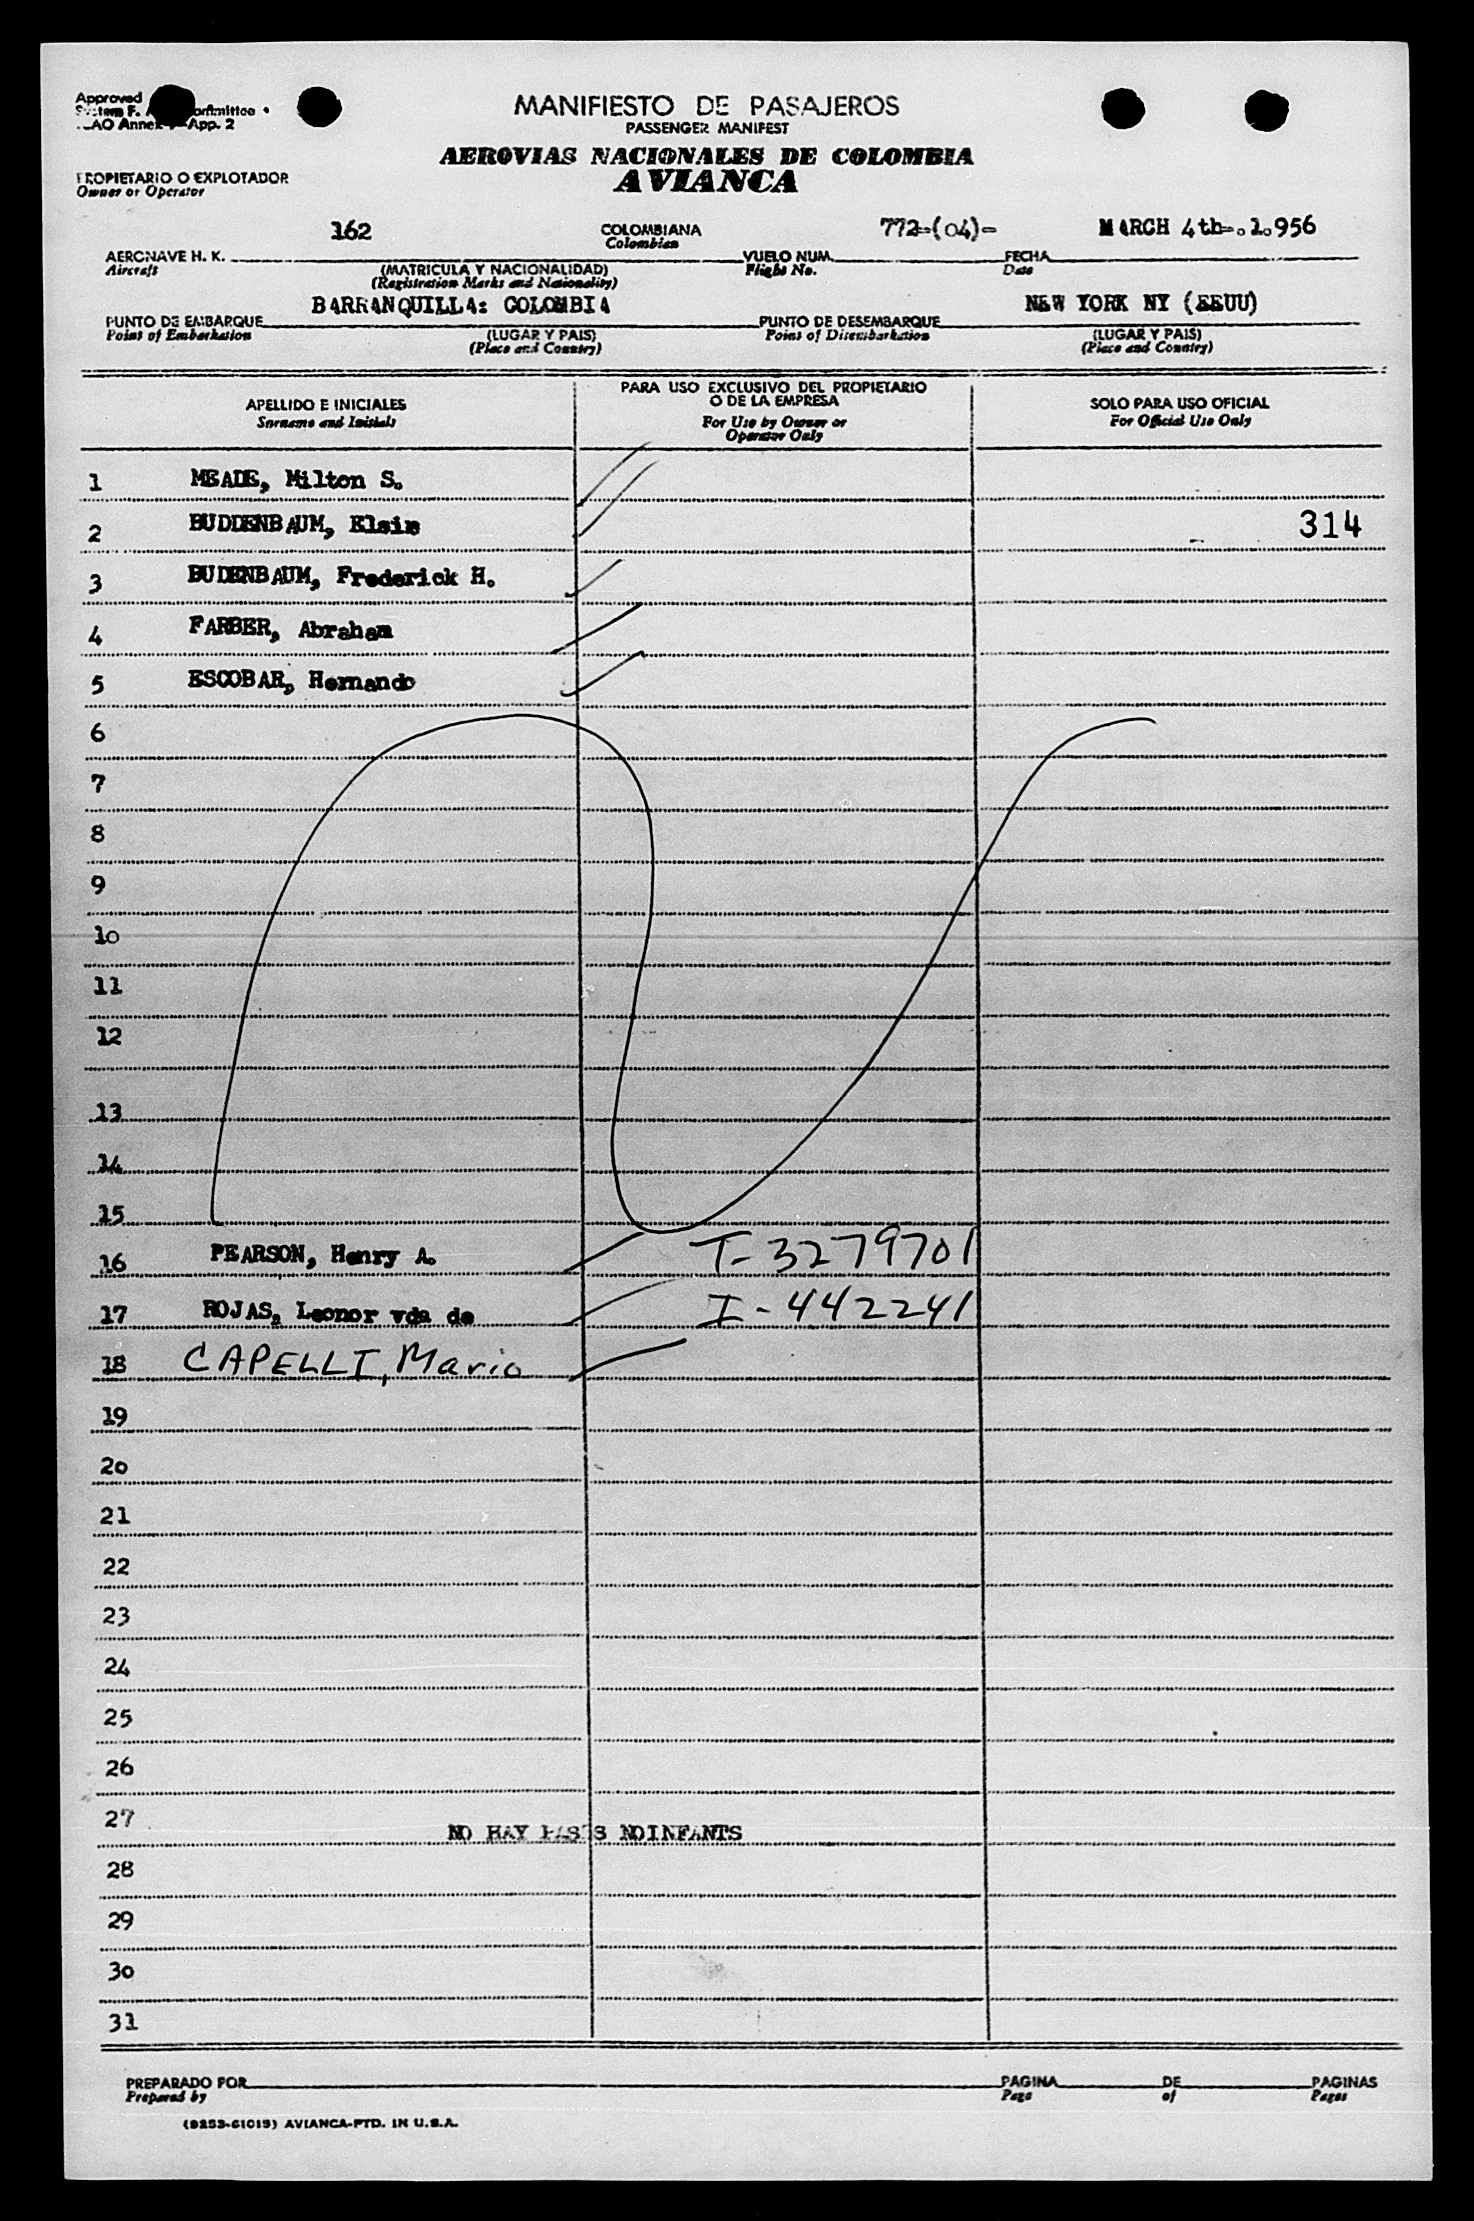 Approved
MANIFIESTO DE PASAJEROS
PASSENGER MANIFEST
AEROVIAS NACIONALES DE COLOMBIA
AVIANCA
PROPIETARIO O EXPLOTADOR
Owner or Operator
162 COLOMBIANA 772-(04)- MARCH 4th-.1.956
Colombian
AERONAVE H. K. VUELO NUM. FECHA
Aircraft (MATRICULA Y NACIONALIDAD) Flight No. Date
(Registration Marks and Nationality)
BARRANQUILLA: COLOMBIA NEW YORK NY (EEUU)
PUNTO DE EMBARQUE PUNTO DE DESEMBARQUE
Point of Embarkation (LUGAR Y PAIS) Point of Disembarkation (LUGAR Y PAIS)
(Place and Country) (Place and Country)
APELLIDO E INICIALES
Surname and Initials
PARA USO EXCLUSIVO DEL PROPIETARIO
O DE LA EMPRESA
For Use by Owner or
Operator Only
SOLO PARA USO OFICIAL
For Official Use Only
1 MEADE, Milton S.
2 BUDDENBAUM, Elsie 314
3 BUDENBAUM, Frederick H.
4 FARBER, Abraham
5 ESCOBAR, Hernando
6
7
8
9
10
11
12
13
14
15
16 PEARSON, Henry A. T-3279701
17 ROJAS, Leonor vda de I-442241
18 CAPELLI, Mario
19
20
21
22
23
24
25
26
27 NO HAY PASTS NOINFANTS
28
29
30
31
PREPARADO POR PAGINA DE PAGINAS
Prepared by Page of Pages
(8253-61015) AVIANCA-PTD. IN U.S.A.